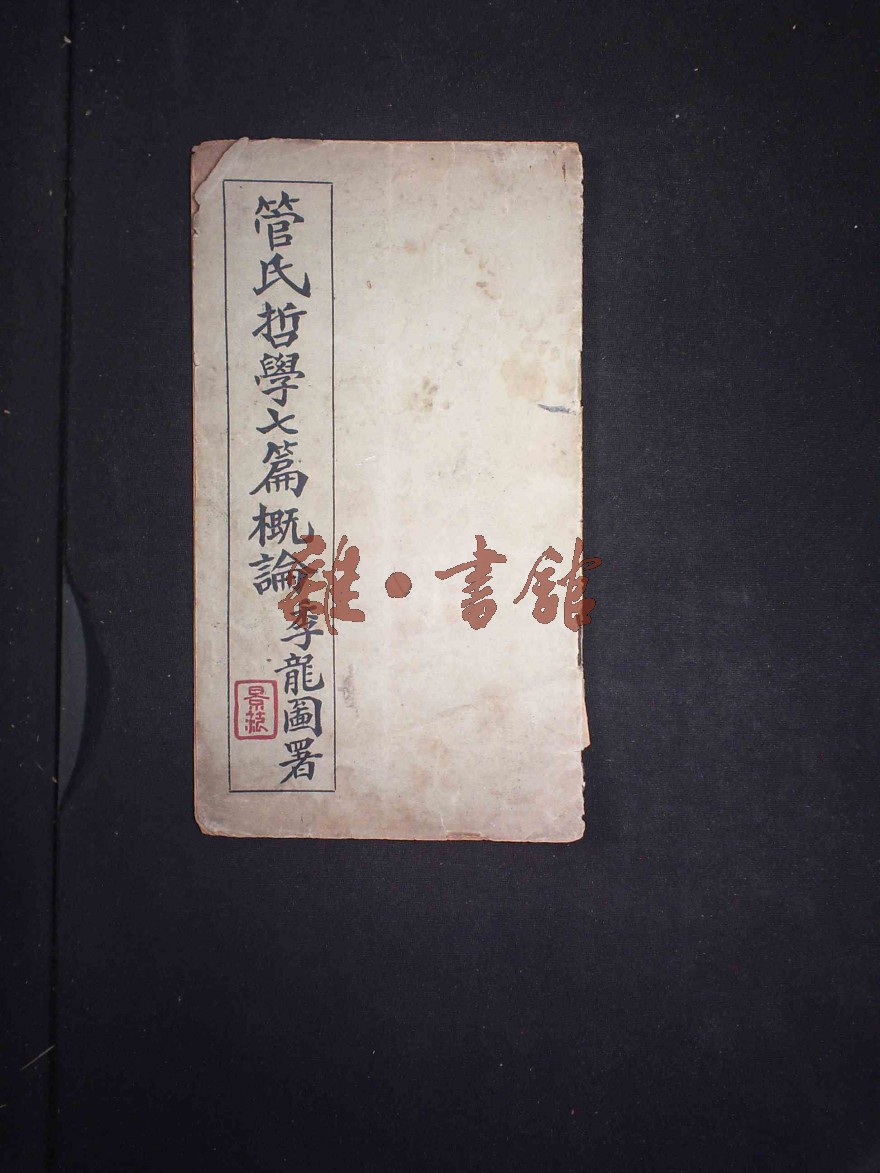 管氏哲學七篇概論
李龍圖署
雜·書館